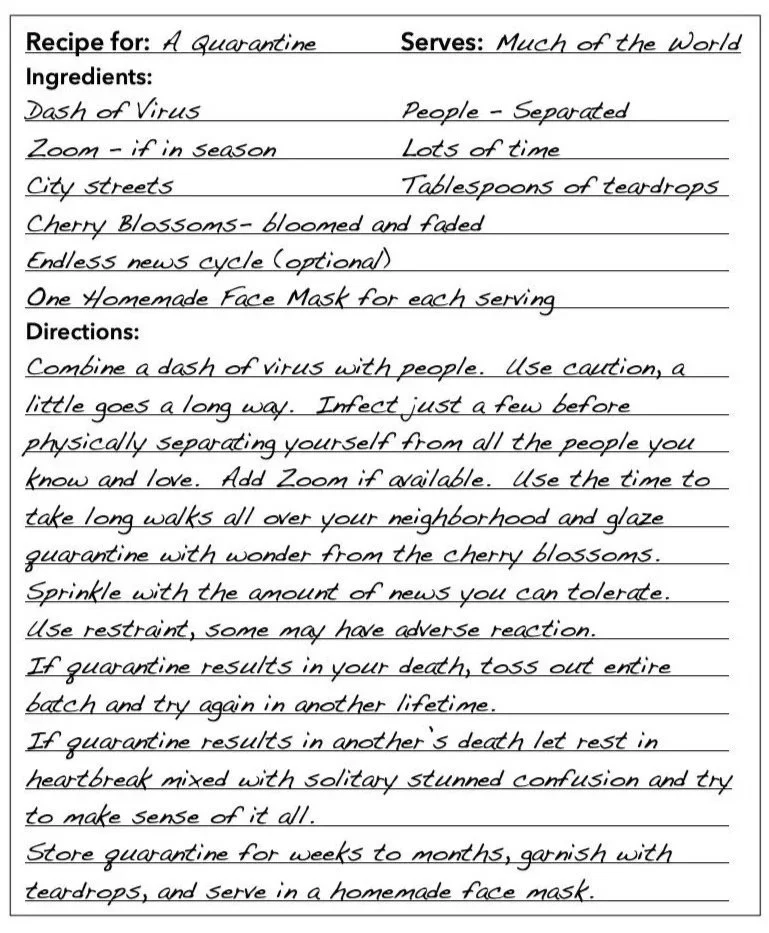 Recipe for: A Quarantine Serves: Much of the World
Ingredients:
Dash of Virus People - Separated
Zoom - if in season Lots of time
City streets Tablespoons of teardrops
Cherry Blossoms- bloomed and faded
Endless news cycle (optional)
One Homemade Face Mask for each serving
Directions:
Combine a dash of virus with people. Use caution, a
little goes a long way. Infect just a few before
physically separating yourself from all the people you
know and love. Add Zoom if available. Use the time to
take long walks all over your neighborhood and glaze
quarantine with wonder from the cherry blossoms.
Sprinkle with the amount of news you can tolerate.
Use restraint, some may have adverse reaction.
If quarantine results in your death, toss out entire
batch and try again in another lifetime.
If quarantine results in another's death let rest in
heartbreak mixed with solitary stunned confusion and try
to make sense of it all.
Store quarantine for weeks to months, garnish with
teardrops, and serve in a homemade face mask.